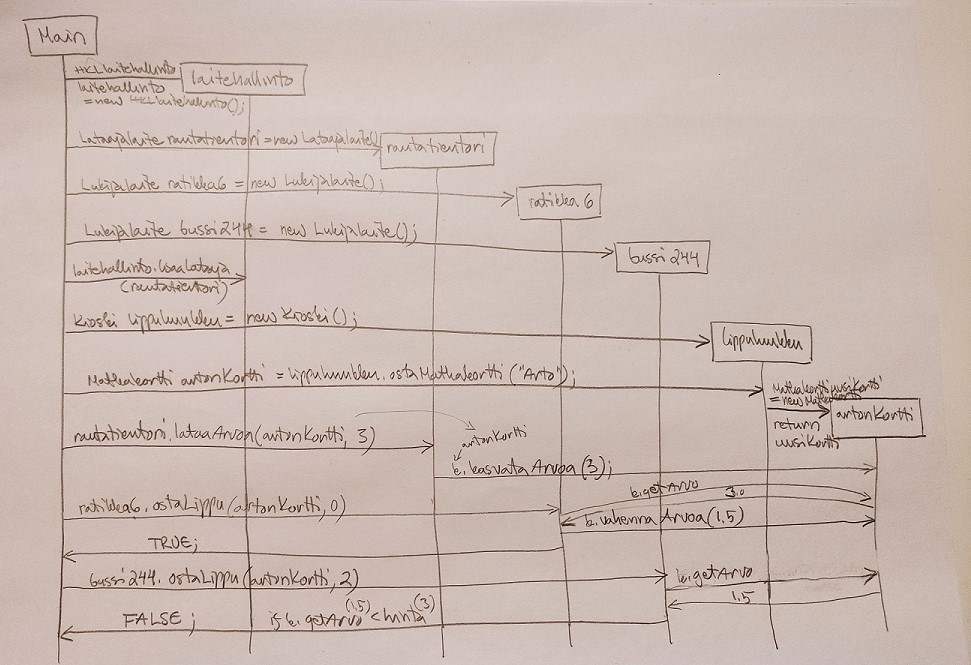 Main
HKLLaitehallinto
laitehallinto
= new HKLLaitehallinto();
laitehallinto
Lataajalaite rautatientori = new Lataajalaite();
rautatientori
Lukijalaite ratikka6 = new Lukijalaite();
ratikka 6
Lukijalaite bussi244 = new Lukijalaite();
bussi 244
laitehallinto.lisaaLataaja
(rautatientori)
Kioski lippuluukku = new Kioski();
lippuluukku
Matkakortti antonKortti = lippuluukku.ostaMatkakortti ("Arto");
Matkakortti uusiKortti
= new Matkakortti
return
uusiKortti
artonKortti
rautatientori.lataaArvoa(artonKortti, 3)
artonKortti
k.kasvataArvoa (3);
ratikka6.ostaLippu(artonKortti, 0)
k.getArvo
3.0
k.vahennaArvoa(1,5)
TRUE;
bussi244.ostaLippu(artonKortti, 2)
k.getArvo
1.5
FALSE;
if k.getArvo (1,5) < hinta (3)